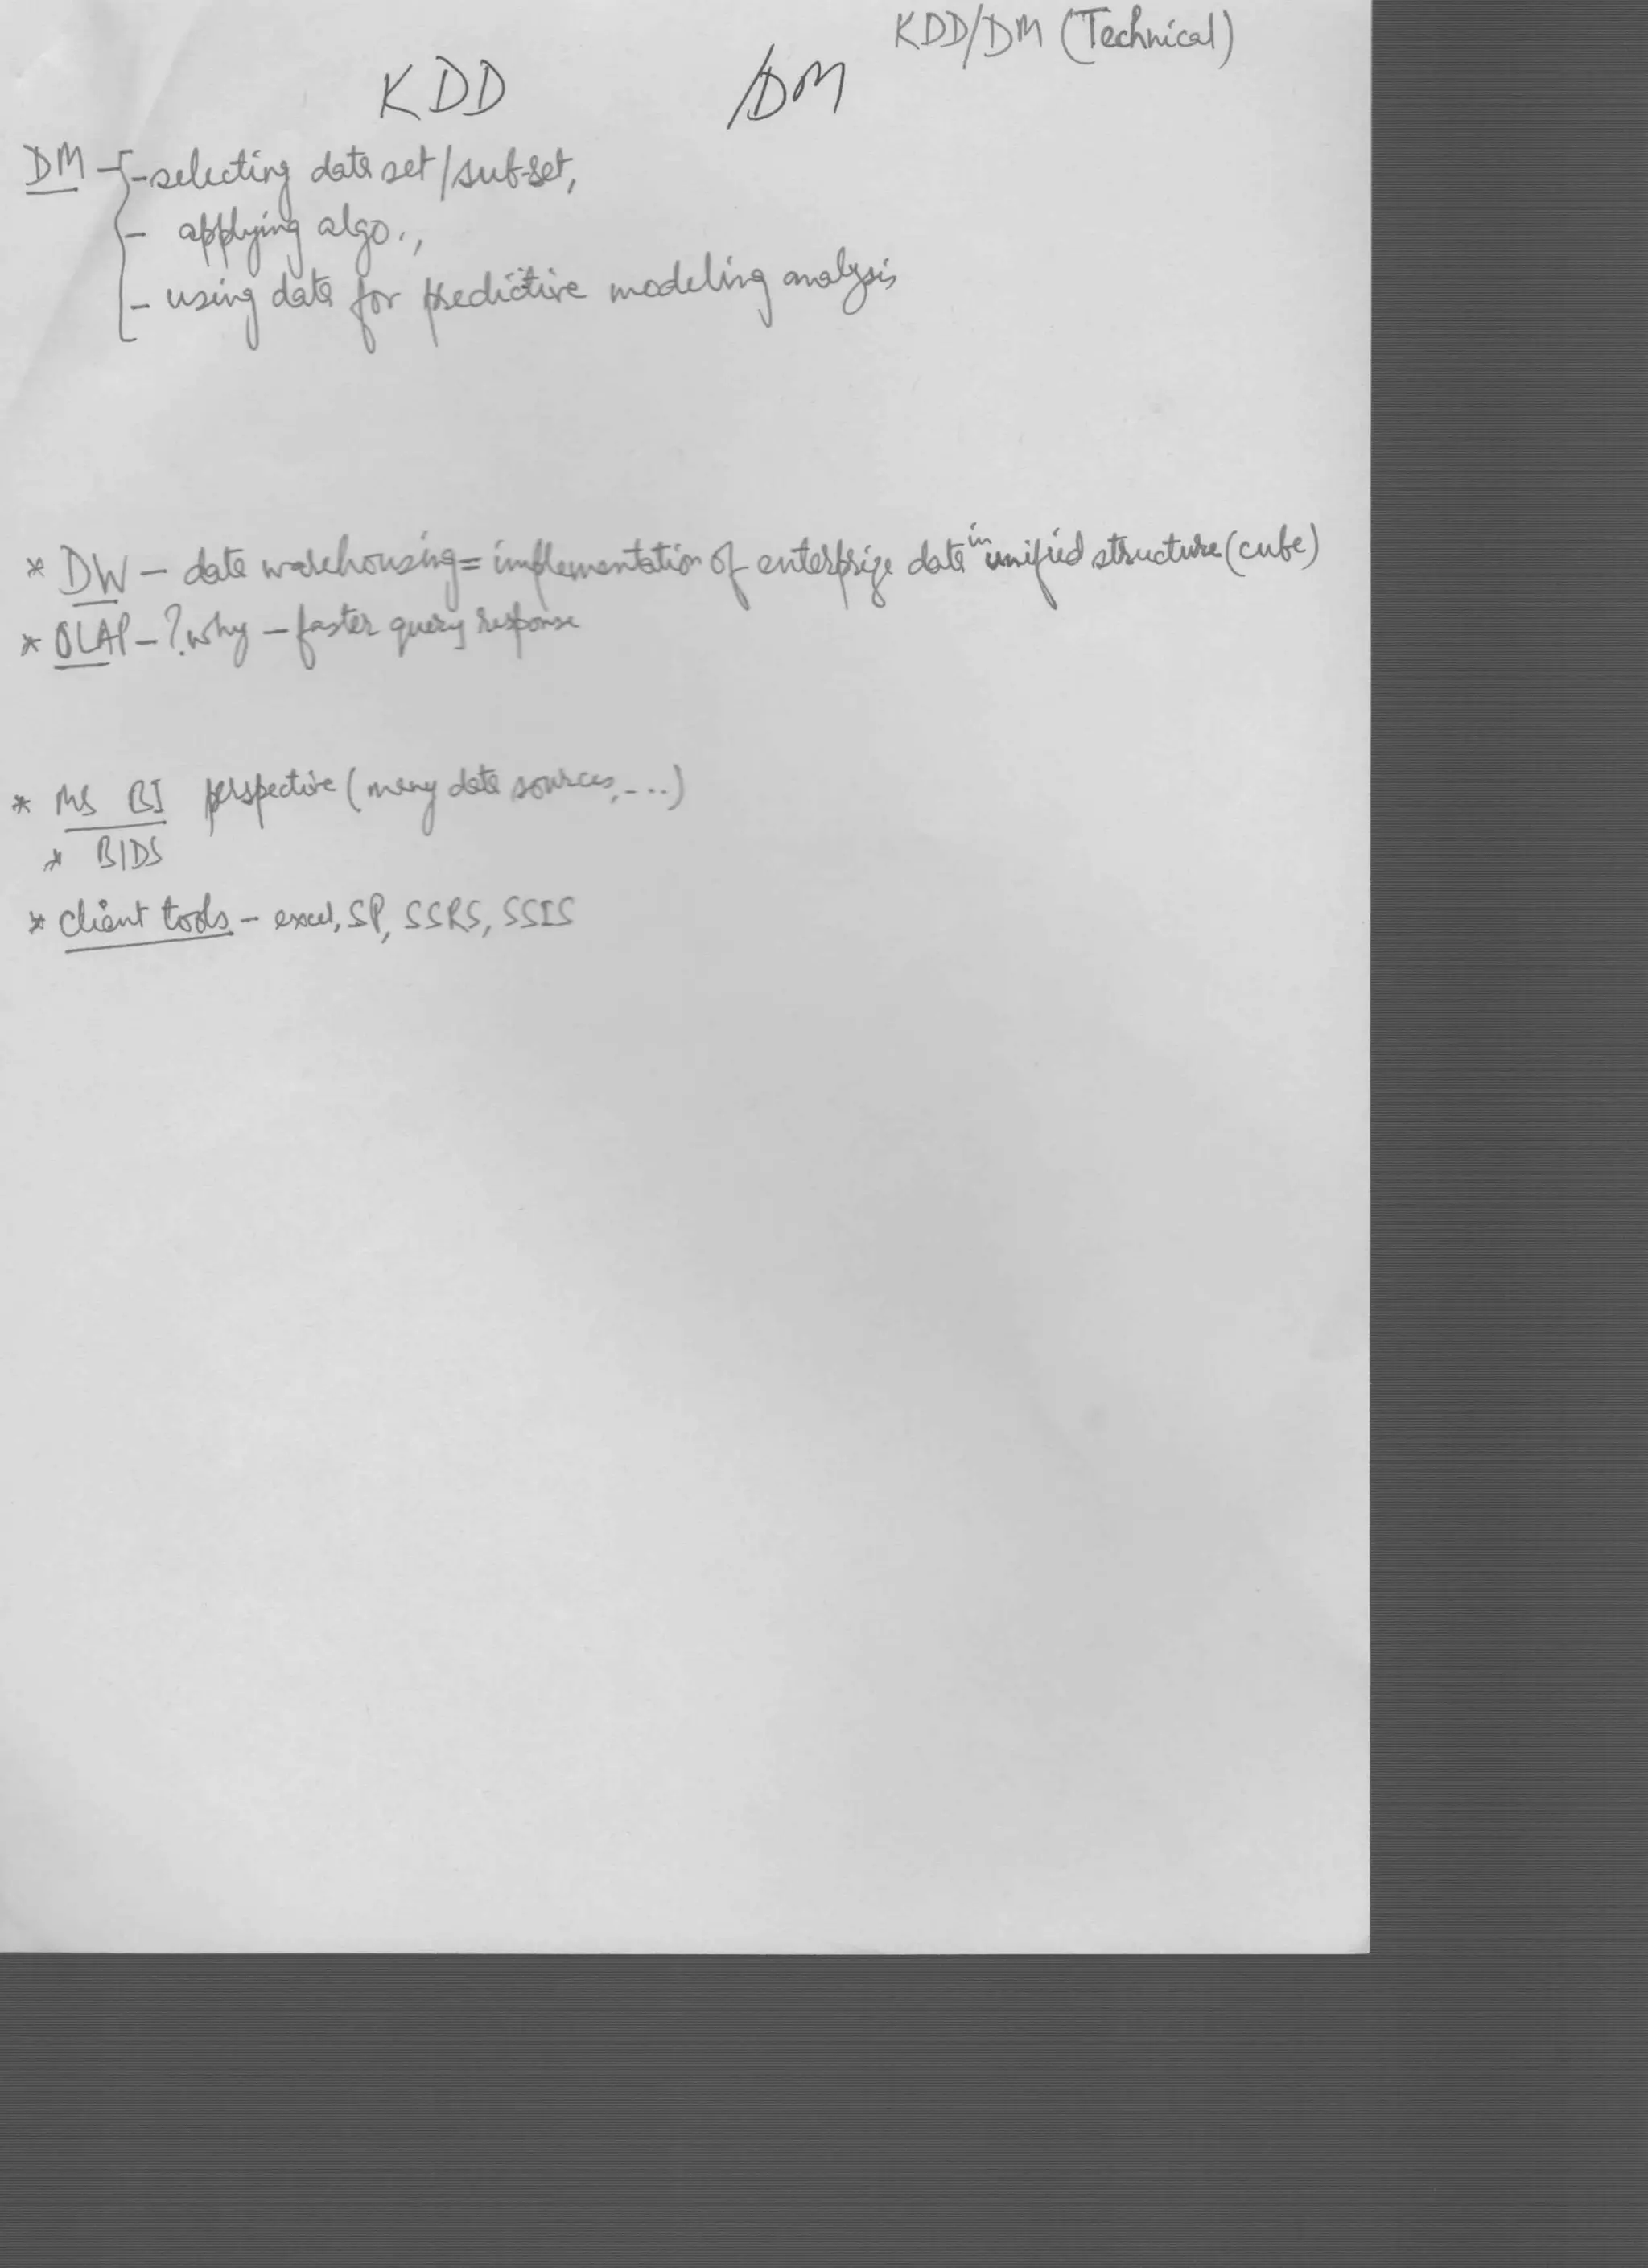 KDD/DM (Technical)
KDD /DM
DM - - selecting data set/sub-set,
- applying algo.,
- using data for predictive modeling analysis
* DW - data warehousing = implementation of enterprize data in unified structure (cube)
* OLAP - ? why - faster query response
* MS BI perspective (many data sources, ...)
* BIDS
* client tools - excel, SP, SSRS, SSIS